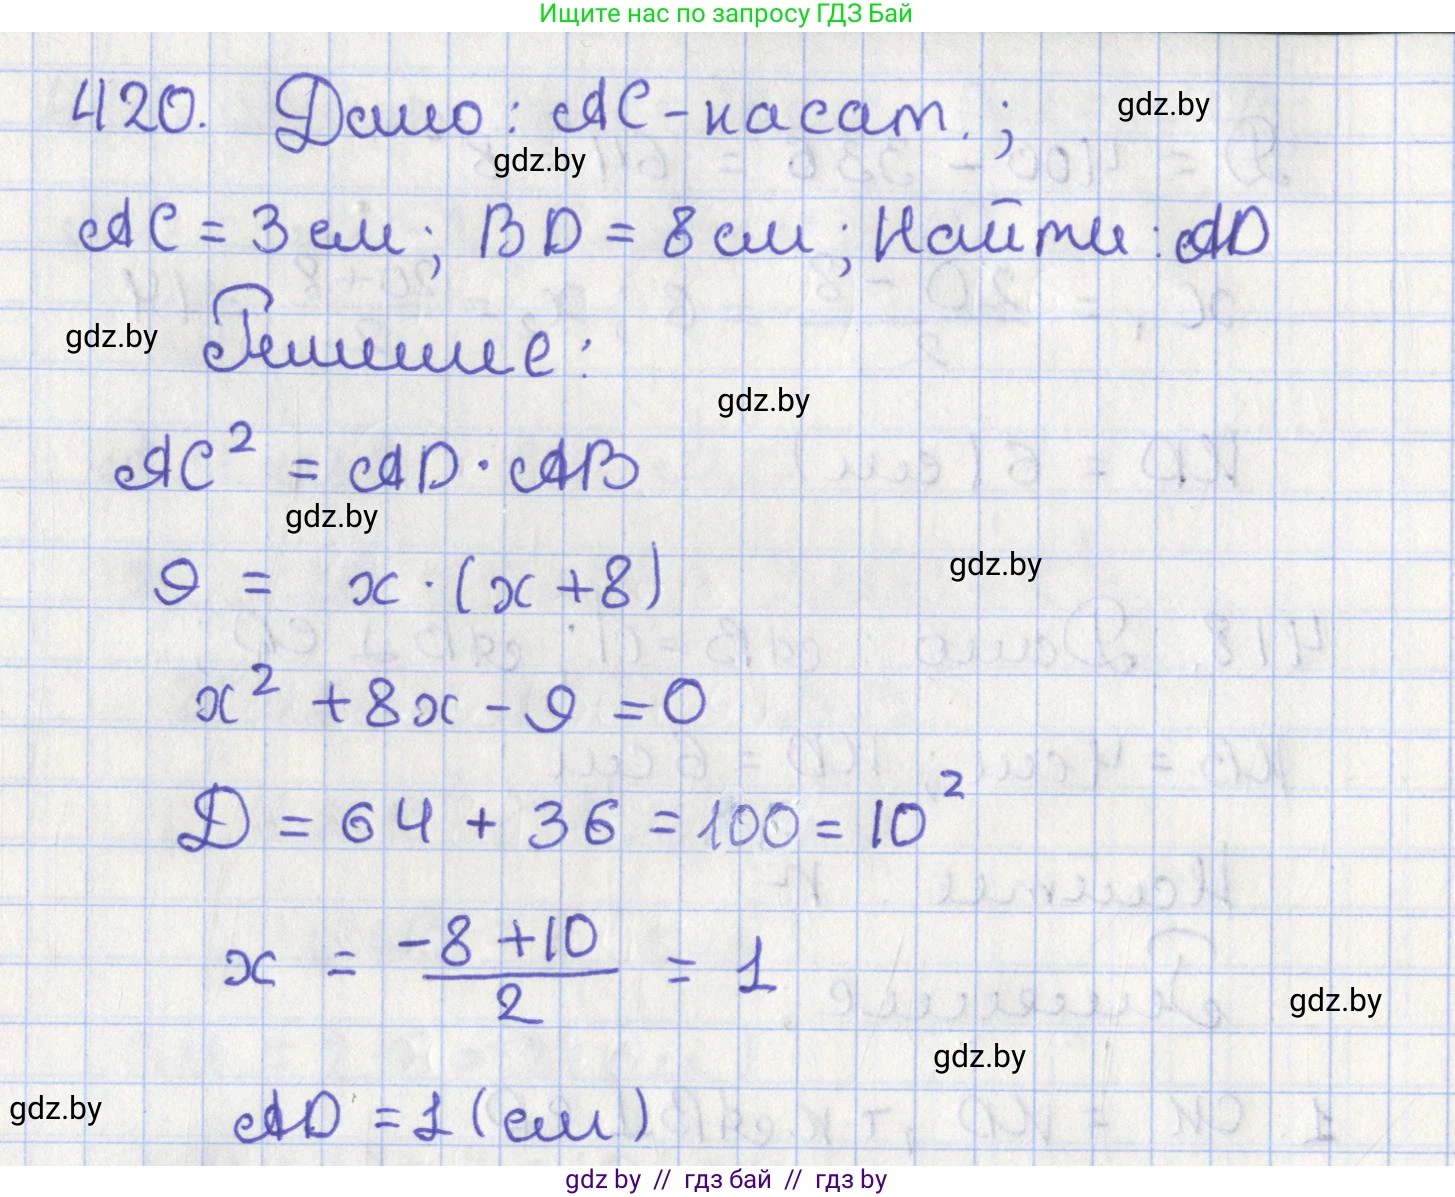 Ищите нас по запросу ГДЗ Бай
420. Дано: AC - касат. ;
gdz.by
gdz.by
AC = 3 см; BD = 8 см; Найти: AD
gdz.by
Решение:
gdz.by
AC² = AD · AB
gdz.by
gdz.by
9 = x · (x + 8)
x² + 8x - 9 = 0
Д = 64 + 36 = 100 = 10²
x = (-8 + 10)/2 = 1
gdz.by
gdz.by
gdz.by
AD = 1 (см)
gdz by // гдз бай // гдз by